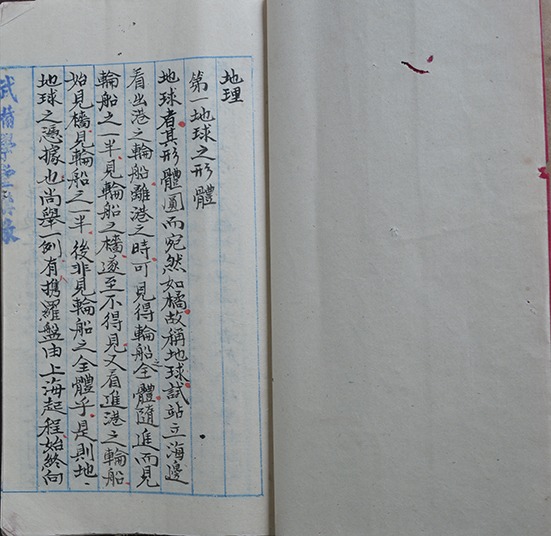 地理
第一地球之形體
地球者其形體圓而宛然如橘故稱地球試站立海邊
看出港之輪船離港之時可見得輪船之全體隨進而見
輪船之一半見輪船之檣遂至不得見又看進港之輪船
始見檣見輪船之一半後非見輪船之全體乎是則地
地球之憑據也尚舉一例有携羅盤由上海起程始終向
武備學堂